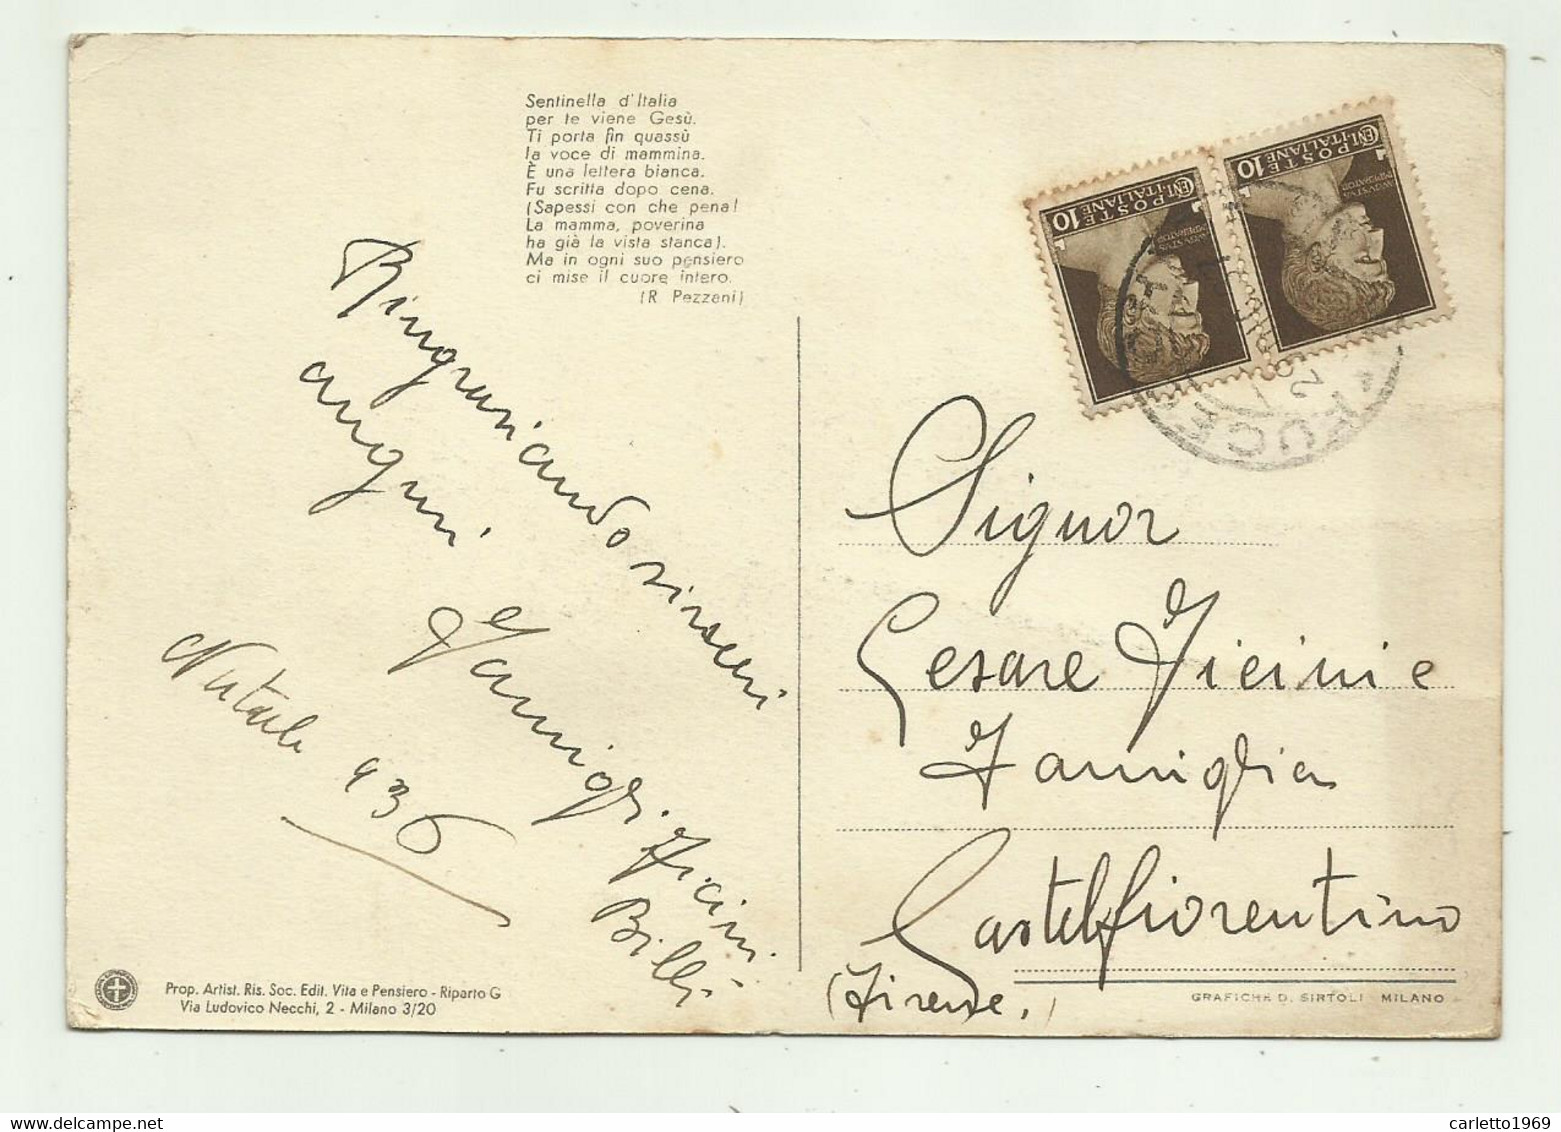 Sentinella d'Italia
per te viene Gesù.
Ti porta fin quassù
la voce di mammina.
È una lettera bianca.
Fu scritta dopo cena.
(Sapessi con che pena!
La mamma, poverina
ha già la vista stanca).
Ma in ogni suo pensiero
ci mise il cuore intero.
(R. Pezzani)
Ringraziando
auguri
Famiglia
Billi
Natale 936
POSTE ITALIANE
CENT. 10
POSTE ITALIANE
CENT. 10
FUCE
Signor
Cesare Ficini e
Famiglia
Castelfiorentino
(Firenze.)
Prop. Artist. Ris. Soc. Edit. Vita e Pensiero - Riparto G
Via Ludovico Necchi, 2 - Milano 3/20
GRAFICHE D. SIRTOLI MILANO
carletto1969